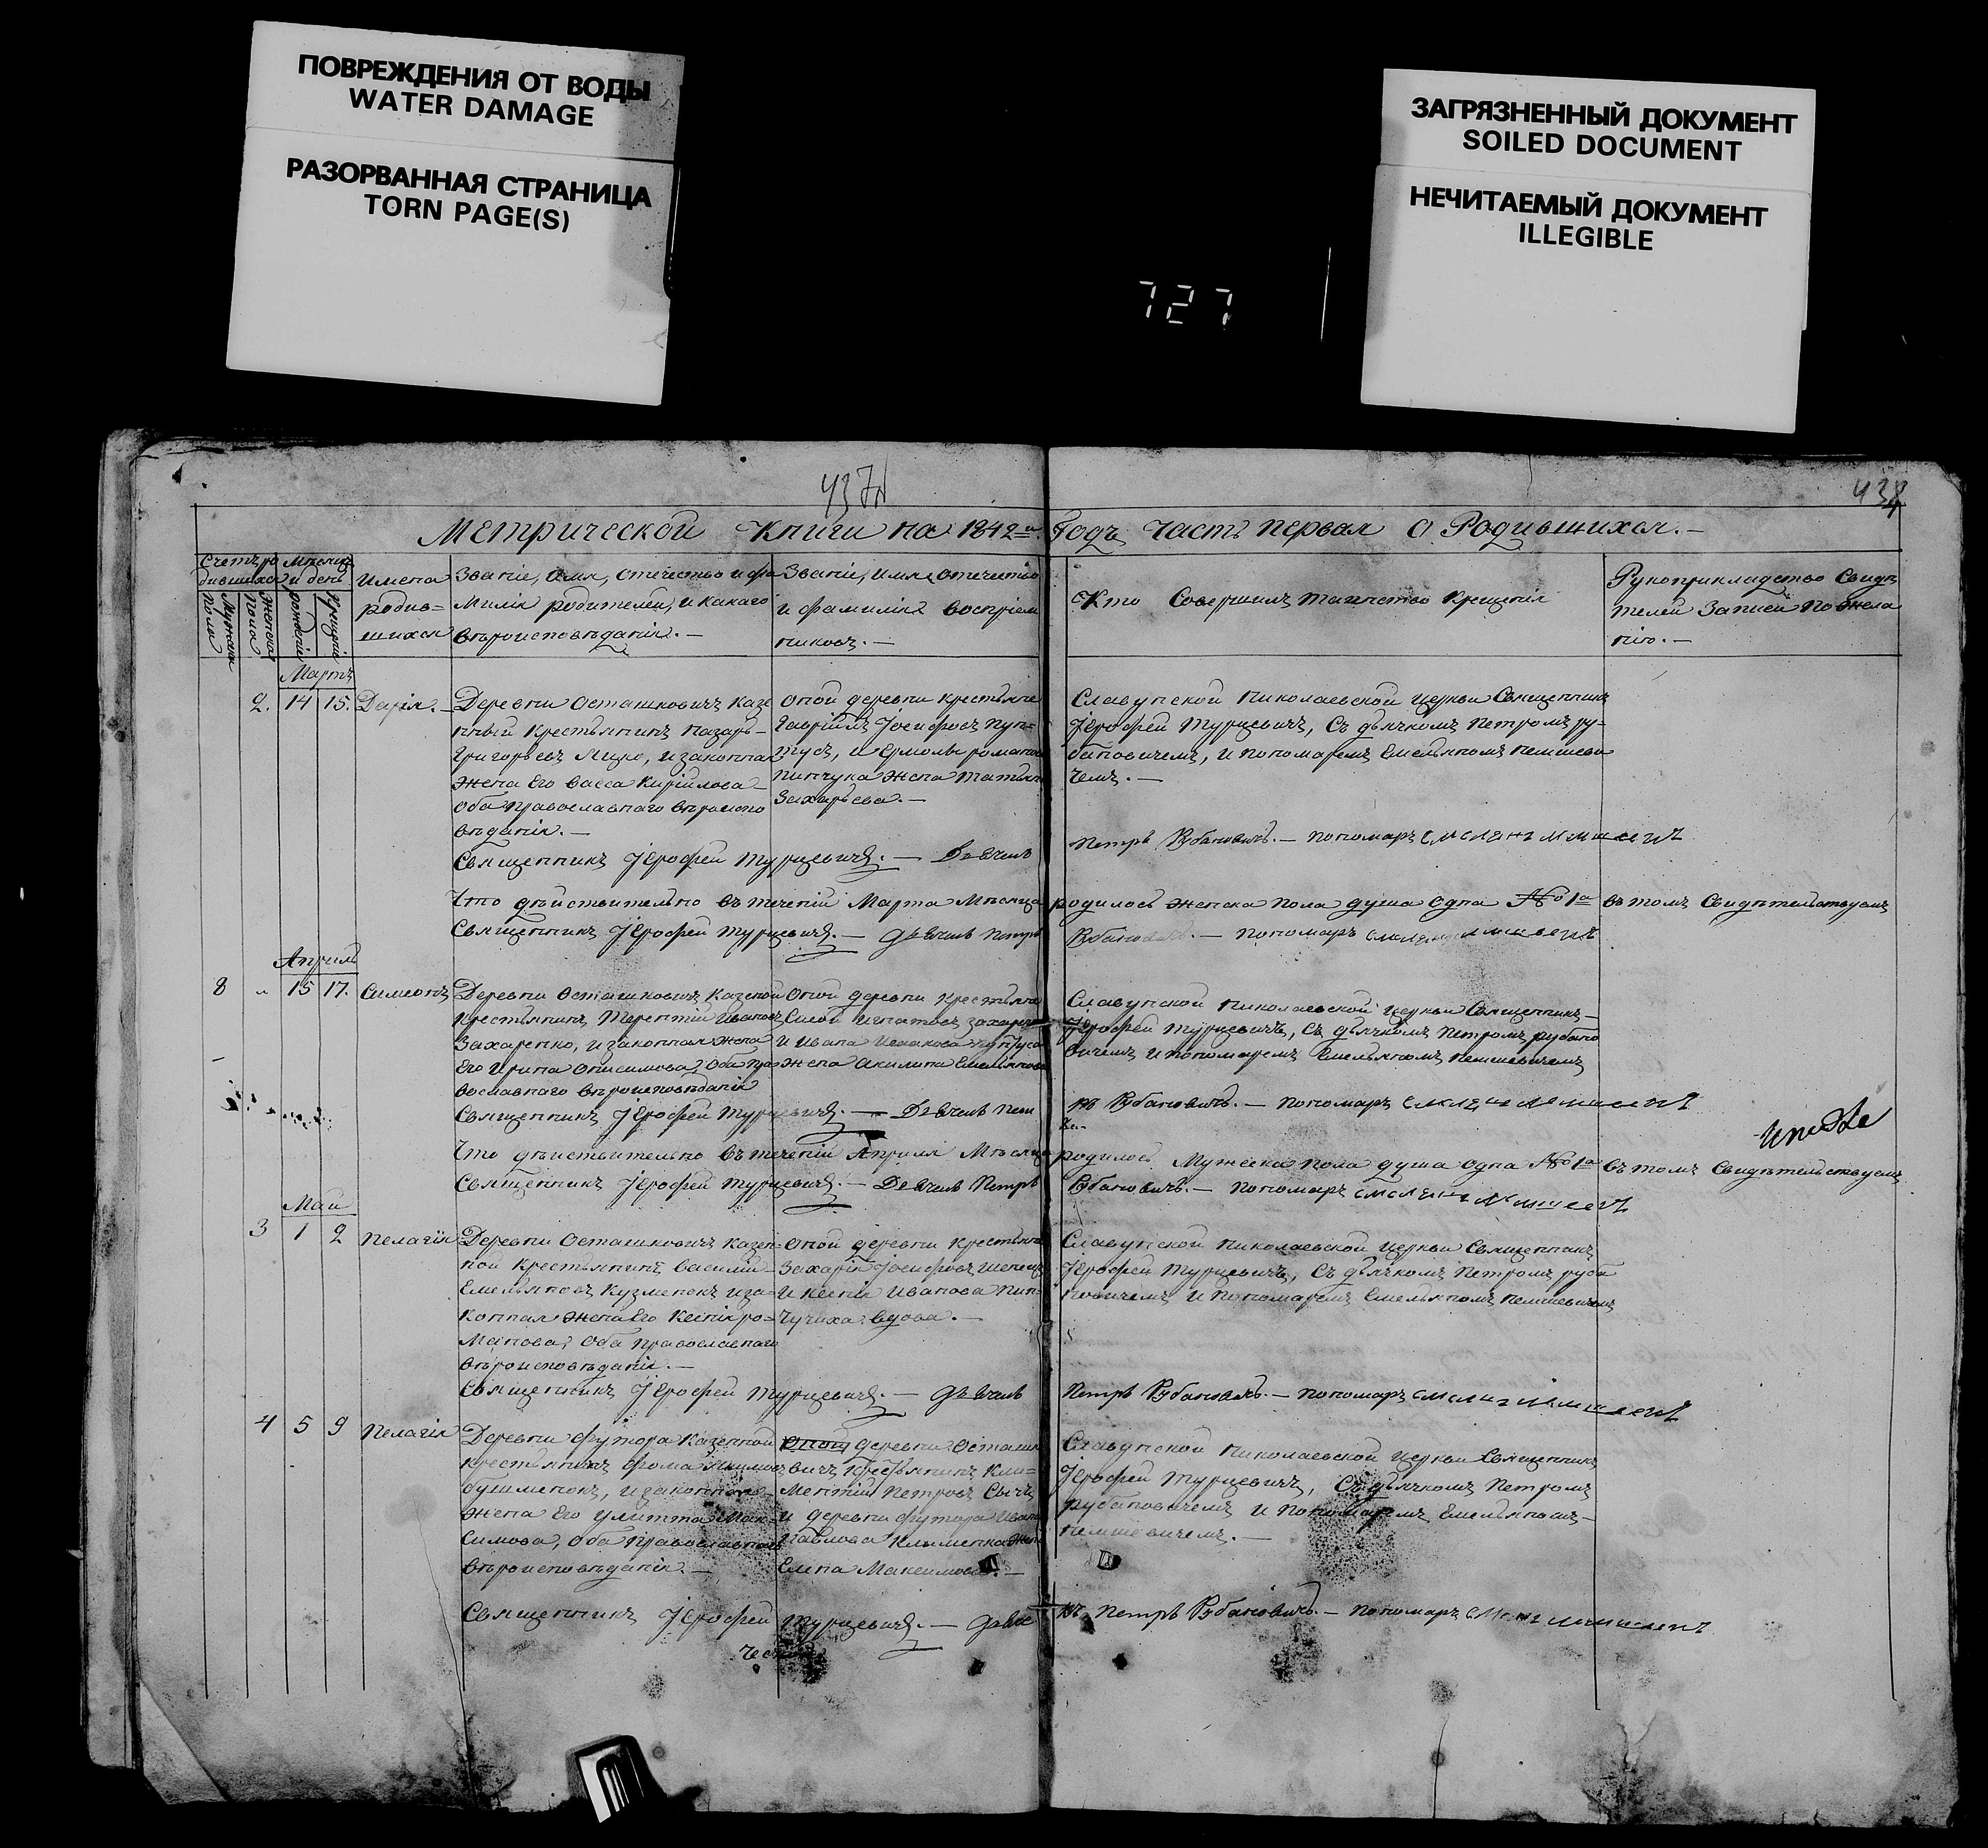 ПОВРЕЖДЕНИЯ ОТ ВОДЫ
WATER DAMAGE
РАЗОРВАННАЯ СТРАНИЦА
TORN PAGE(S)
ЗАГРЯЗНЕННЫЙ ДОКУМЕНТ
SOILED DOCUMENT
НЕЧИТАЕМЫЙ ДОКУМЕНТ
ILLEGIBLE
727
437
438
Метрической Книги на 1842й Годъ Часть первая о Родившихся.—
Счетъ ро
дившихся
Мужска
Пола
Женска
Пола
Мѣсяцъ
и день
рожденіе
Крещеніе
Имена
родив=
шихся
Званіе, Имя, отечество и фа
Милія родителей, и какаго
вѣроисповѣданія.—
Званіе, Имя, отечество
и фамилія воспріем
никовъ.—
Кто Совершилъ таинство крещенія
Рукоприкладство Свидѣ
телей Записей по жела
нію.—
Мартъ
2. 14 15. Дарія.
Деревни Осташковичъ Казе
нный Крестьянинъ Назаръ
Григорьевъ Яцко, и законная
жена Его Васса Кирійлова
Оба православнаго вѣроиспо
вѣданія.—
Оной деревни крестьяне
Гавріилъ Іосифовъ Пун=
тусъ, и Ермолы романова
пинчука жена Татьяна
Захарьева.—
Славунской Николаевской Церкви Священникъ
Іерофей Турцевичъ, Съ дьячкомъ Петромъ ру=
бановичемъ, и пономаремъ Емельяномъ Немшеви
чемъ.—
Священникъ Іерофей Турцевичъ.— Дьячекъ
Петръ Рубановичъ.— Пономарь
Что дѣйствительно въ теченіи Марта Мѣсяца родилось женска пола душа одна № 1а въ томъ Свидѣтельствуемъ
Священникъ Іерофей Турцевичъ.— Дьячекъ Петръ Рубановичъ.— Пономарь
Апрѣль
8 „ 15 17. Симеонъ
Деревни Осташковичъ Казеной
Крестьянинъ Терентій Ивановъ
Захаренко, и законная жена
Его Ирина Онисимова, Оба пра
вославнаго вѣроисповѣданія
Оной деревни крестьяне
Силой Игнатовъ Захаренко
и Ивана Исаакова Пунтуса
жена Акилина Емельянова
Славунской Николаевской Церкви Священникъ—
Іерофей Турцевичъ, Съ дьячкомъ Петромъ рубано
вичемъ и пономаремъ Емельяномъ Немшевичемъ
Священникъ Іерофей Турцевичъ.— Дьячекъ Пет
ръ Рубановичъ.— Пономарь
Что дѣйствительно въ теченіи Апрѣля Мѣсяца родилось Мужеска пола душа одна № 1а въ томъ Свидѣтельствуемъ
Священникъ Іерофей Турцевичъ.— Дьячекъ Петръ Рубановичъ.— Пономарь
Май
3 1 2 Пелагія
Деревни Осташковичъ Казен=
ной Крестьянинъ Василій
Емельяновъ Кузменокъ и за=
конная жена Его Ксенія ро=
манова, Оба православнаго
вѣроисповѣданія.—
Оной деревни крестьяне
Захарій Іосифовъ Шепецъ
и Ксенія Иванова Пин=
чучиха вдова.—
Славунской Николаевской Церкви Священникъ
Іерофей Турцевичъ, Съ дьячкомъ Петромъ руба
новичемъ и Пономаремъ Емельяномъ Немшевичемъ
Священникъ Іерофей Турцевичъ.— Дьячекъ
Петръ Рубановичъ.— Пономарь
4 5 9 Пелагія
Деревни Футора Казенной
Крестьянинъ Фома
и законная
жена Его Улитта Мак=
симова, Оба Православнаго
вѣроисповѣданія.—
Оной деревни Осташко
вичъ Крестьянинъ Кли=
ментій Петровъ Сычъ
и деревни Футора Ивана
Павлова Клименка жена
Елена Максимова.—
Славунской Николаевской Церкви Священникъ
Іерофей Турцевичъ, Съ дьячкомъ Петромъ
Рубановичемъ и Пономаремъ Емельяномъ
Немшевичемъ.—
Священникъ Іерофей Турцевичъ.— Дьяче
къ Петръ Рубановичъ.— Пономарь